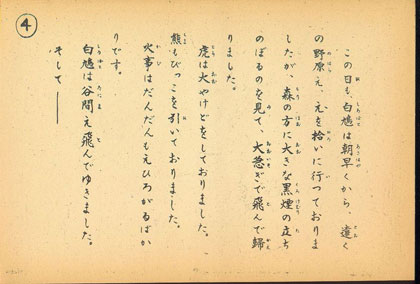 ④
この日も、白鳩は朝早くから 遠く
の野原え、え を拾いに行つておりま
したが、森の方に大きな黒煙の立ち
のぼるのを見て、大急ぎで飛んで歸
りました。
虎は大やけどをしておりました。
熊もびつこを引いておりました。
火事はだんだんもえひろがるばか
りです。
白鳩は谷間え飛んでゆきました。
そして――